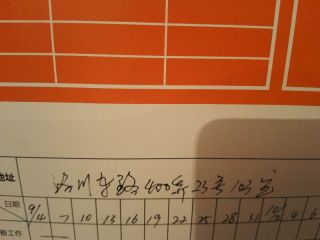 地址 川东路400弄23号103室
日期 9/4 7 10 13 16 19 22 25 28 31 10/3 4 6
备工作